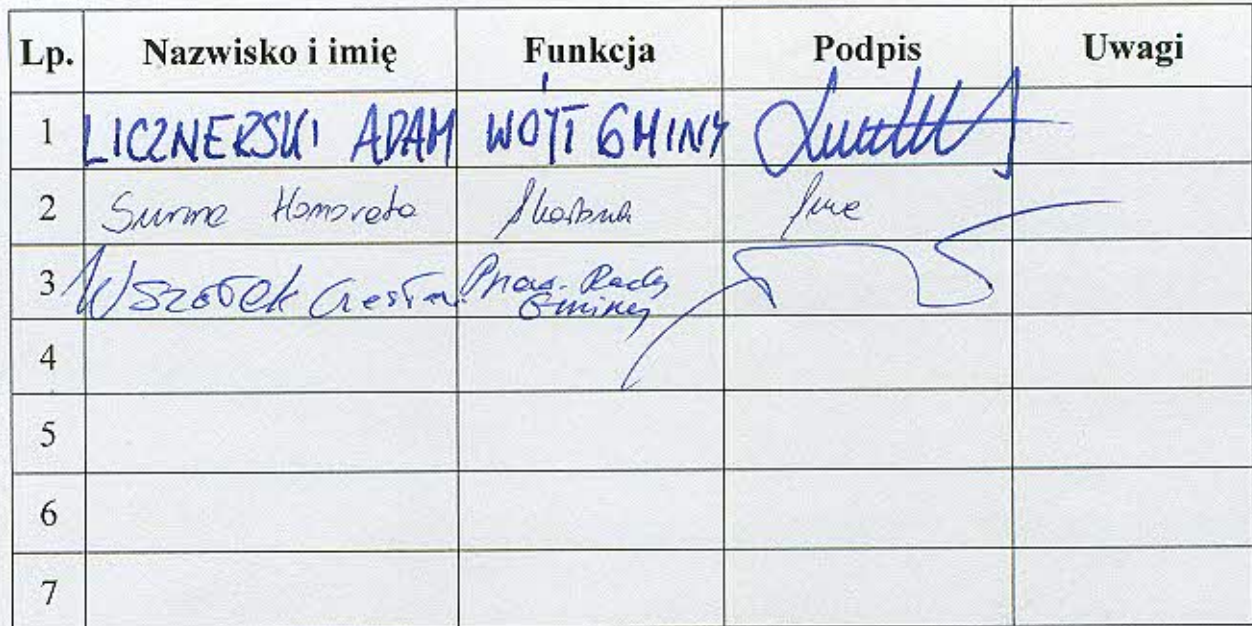 Lp. Nazwisko i imię Funkcja Podpis Uwagi
1 LICZNERSKI ADAM WÓJT GMINY
2 Surma Honorata Skarbnik
3 Wszołek Czesław Rady
Gminy
4
5
6
7